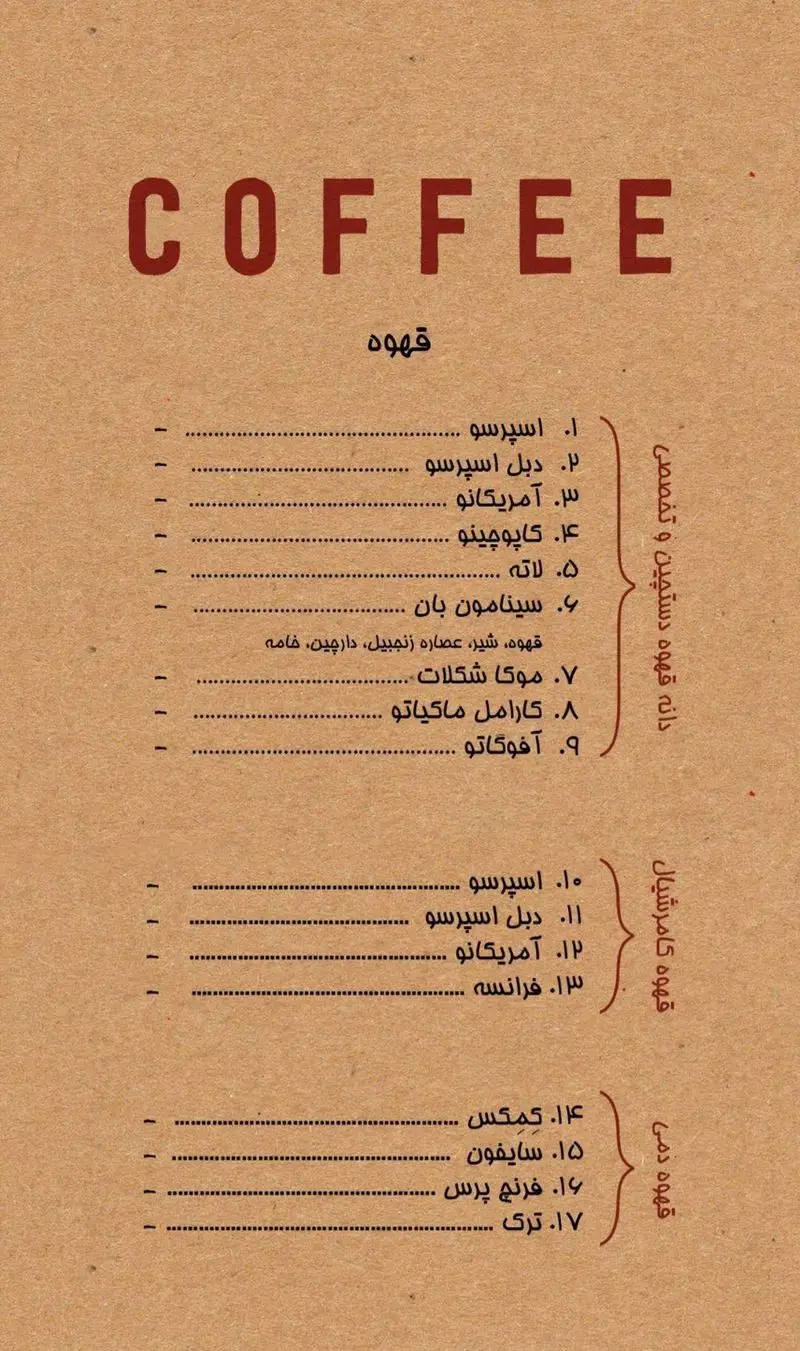 COFFEE
قهوه
۱. اسپرسو ............................................ -
۲. دبل اسپرسو .................................... -
۳. آمریکانو .......................................... -
۴. کاپوچینو .......................................... -
۵. لاته .................................................. -
۶. سینامون بان ................................... -
قهوه، شیر، عصاره زنجبیل، دارچین، خامه
۷. موکا شکلات ................................... -
۸. کارامل ماکیاتو ............................... -
۹. آفوگاتو ........................................... -
دانه قهوه دستچین و تخصصی
۱۰. اسپرسو ........................................... -
۱۱. دبل اسپرسو ................................... -
۱۲. آمریکانو ......................................... -
۱۳. فرانسه ........................................... -
قهوه کامرشیال
۱۴. کِمِکس ............................................. -
۱۵. سایفون ............................................ -
۱۶. فرنچ پرس ........................................... -
۱۷. ترک .................................................... -
قهوه دمی